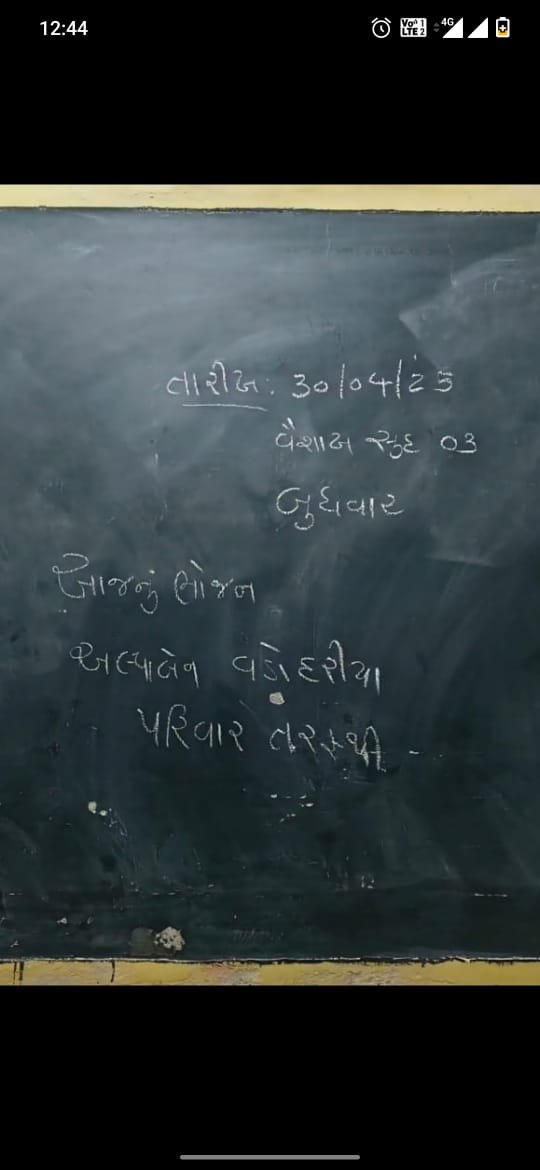 12:44
Vo 1
LTE 2
4G
તારીખ: 30/04/25
વૈશાખ સુદ 03
બુધવાર
આજનું ભોજન
અલ્પાબેન વડોદરીયા
પરિવાર તરફથી